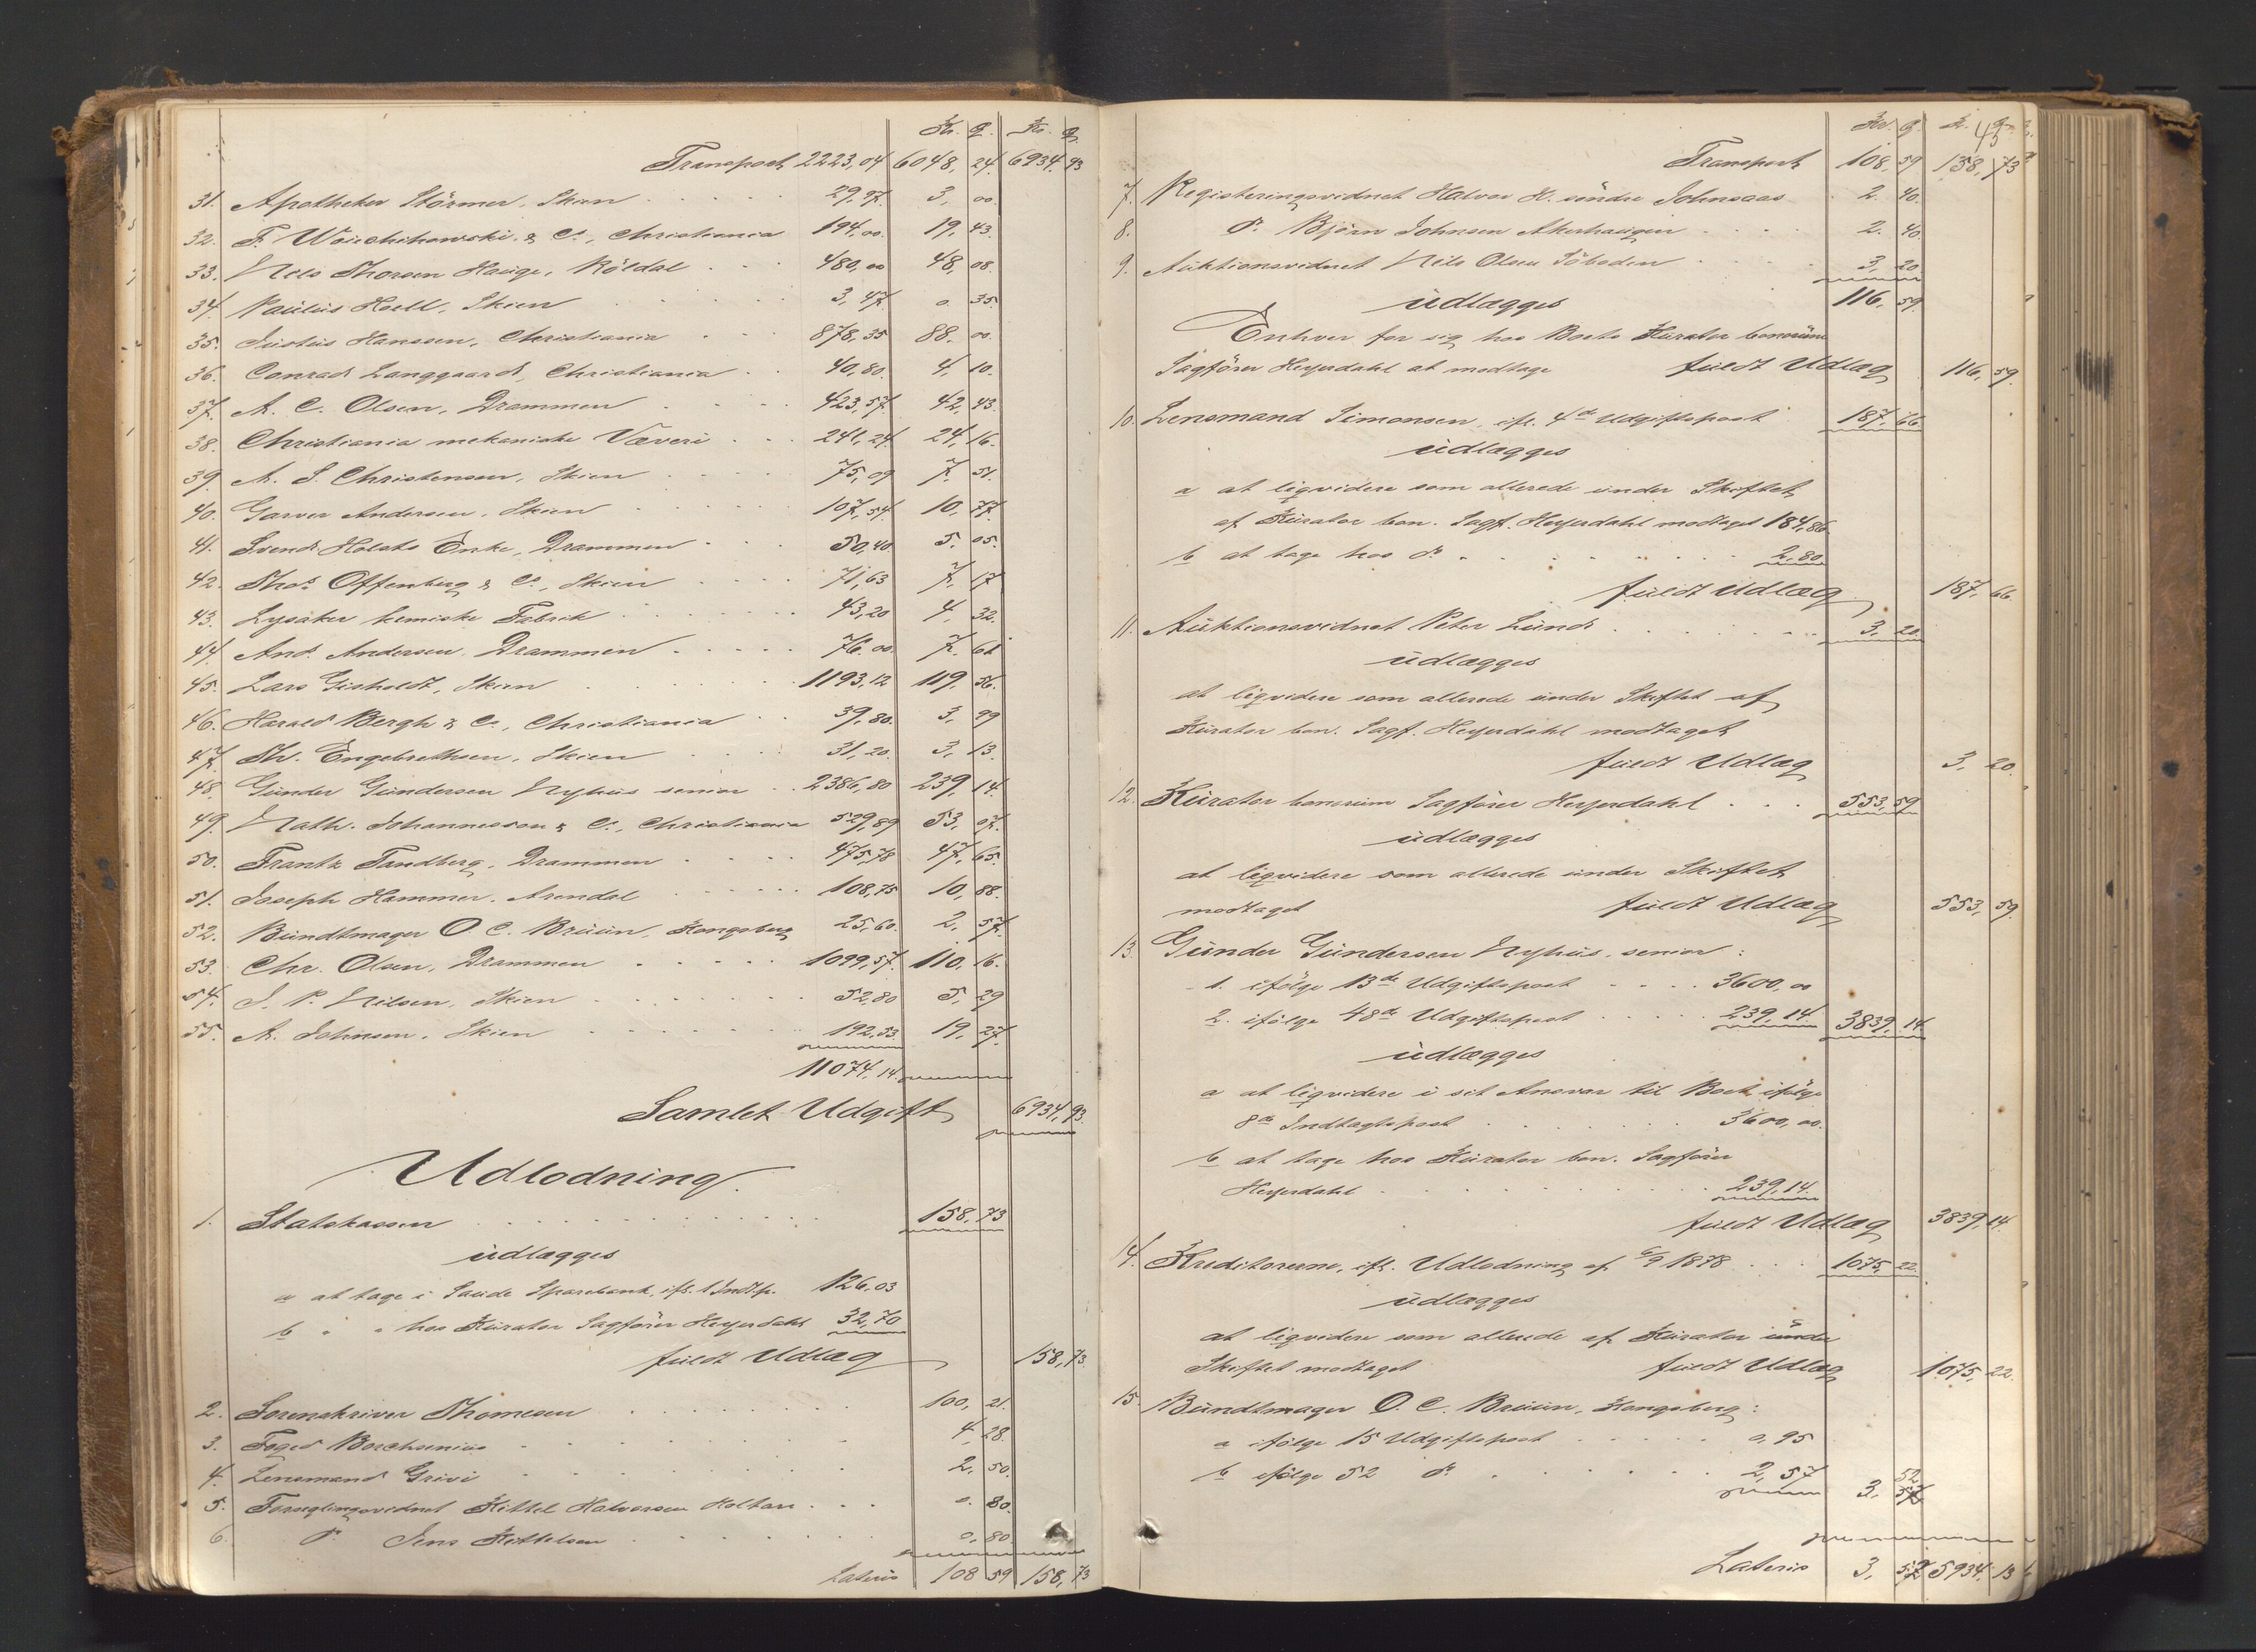 Kr. Ø. Kr. Ø.
Transport 2223,04 6048, 24. 6934. 93
31. Apotheker Störmer, Skien 29,97. 3, 00.
32. F. Woiechikowski & Co., Christiania 194,00. 19, 43.
33. Nels Thorsen Hauge, Röldal 480,00 48, 08.
34. Paulus Hoell, Skien 3,47. 0. 35.
35. Justus Hanssen, Christiania 878,35 88. 00.
36. Conrad Langgaard, Christiania 40,80. 4, 10.
37. A. C. Olsen, Drammen 423,57. 42, 43.
38. Christiania mekaniske Væveri 241,24. 24, 16.
39. A. S. Christensen, Skien 75,09 7. 51.
40. Garver Andersen, Skien 107,54. 10, 77.
41. Svend Holsts Enke, Drammen 50,40 5. 05.
42. Thos. Offenberg & Co., Skien 71,63 7, 17
43. Lysaker kemiske Fabrik 43,20 4, 32.
44. And. Andersen, Drammen 76,00. 7. 61
45. Lars Gisholdt, Skien 1193,12 119, 56.
46. Harald Bergh & Co., Christiania 39,80. 3, 99
47. Th. Engebrethsen, Skien 31,20. 3, 13.
48. Gunder Gundersen Nyhus senior 2386,80 239, 14.
49. Nath. Johannesson & Co., Christiania 529,89 53, 07.
50. Frantz Tandberg, Drammen 475,78 47, 65.
51. Joseph Hammer, Arendal 108,75 10, 88.
52. Bundtmager O. C. Bruun, Kongsberg 25,60. 2, 57.
53. Chr. Olsen, Drammen 1099,57. 110, 16.
54. J. P. Nilsen, Skien 52,80 5, 29
55. A. Johnsen, Skien 192,53. 19, 27.
11074,14.
Samlet Udgift 6934, 93.
Udlodning.
1. Statskassen 158, 73
udlægges
a at tage i Saude Sparebank, ifl. 1 Indt.p. 126,03
b " " hos Kurator Sagförer Heyerdahl 32,70
fuldt Udlæg 158, 73.
2. Sorenskriver Thomesen 100, 21.
3. Foged Borchsenius 4, 28.
4. Lensmand Grivi 2, 50.
5. Forseglingsvidnet Kittel Halvorsen Holtan 0. 80.
6. do. Jens Kittelsen 0, 80.
Lateris 108 59 158, 73
45
Kr. Ø. Kr. Ø.
Transport 108, 59 158, 73
7. Registeringsvidnet Halvor H. söndre Johnsaas 2. 40.
8. do. Björn Johnsen Akerhaugen 2. 40.
9. Auktionsvidnet Nils Olsen Söboden 3, 20.
udlægges 116, 59.
Enhver for sig hos Boets Kurator bonorum
Sagförer Heyerdahl at modtage fuldt Udlæg 116, 59.
10. Lensmand Simonsen, ifl. 4de Udgiftspost 187, 66.
udlægges
a at liqvidere som allerede under Skiftet
af Kurator bon. Sagf. Heyerdahl modtaget 184,86.
b at tage hos do. 2,80.
fuldt Udlæg 187, 66.
11. Auktionsvidnet Peter Lund 3, 20.
udlægges
at liqvidere som allerede under Skiftet af
Kurator bon. Sagf. Heyerdahl modtaget
fuldt Udlæg 3, 20.
12. Kurator bonorum Sagförer Heyerdahl 553, 59
udlægges
at liqvidere som allerede under Skiftet
modtaget fuldt Udlæg 553, 59.
13. Gunder Gundersen Nyhus, senior:
1. ifölge 13de Udgiftspost 3600,00
2. ifölge 48de Udgiftspost 239,14. 3839, 14.
udlægges
a at liqvidere i sit Ansvar til Boet ifölge
8de Indtægtspost 3600,00.
b at tage hos Kurator bon. Sagförer
Heyerdahl 239,14.
fuldt Udlæg 3839, 14.
14. Kreditorerne, ifl. Udlodning af 6/9 1878 1075, 22.
udlægges
at liqvidere som allerede af Kurator under
Skiftet modtaget fuldt Udlæg 1075, 22.
15. Bundtmager O. C. Bruun, Kongsberg:
a ifölge 15 Udgiftspost 0,95
b ifölge 52 do. 2,57 3, 52
Lateris 3, 52 5934, 13